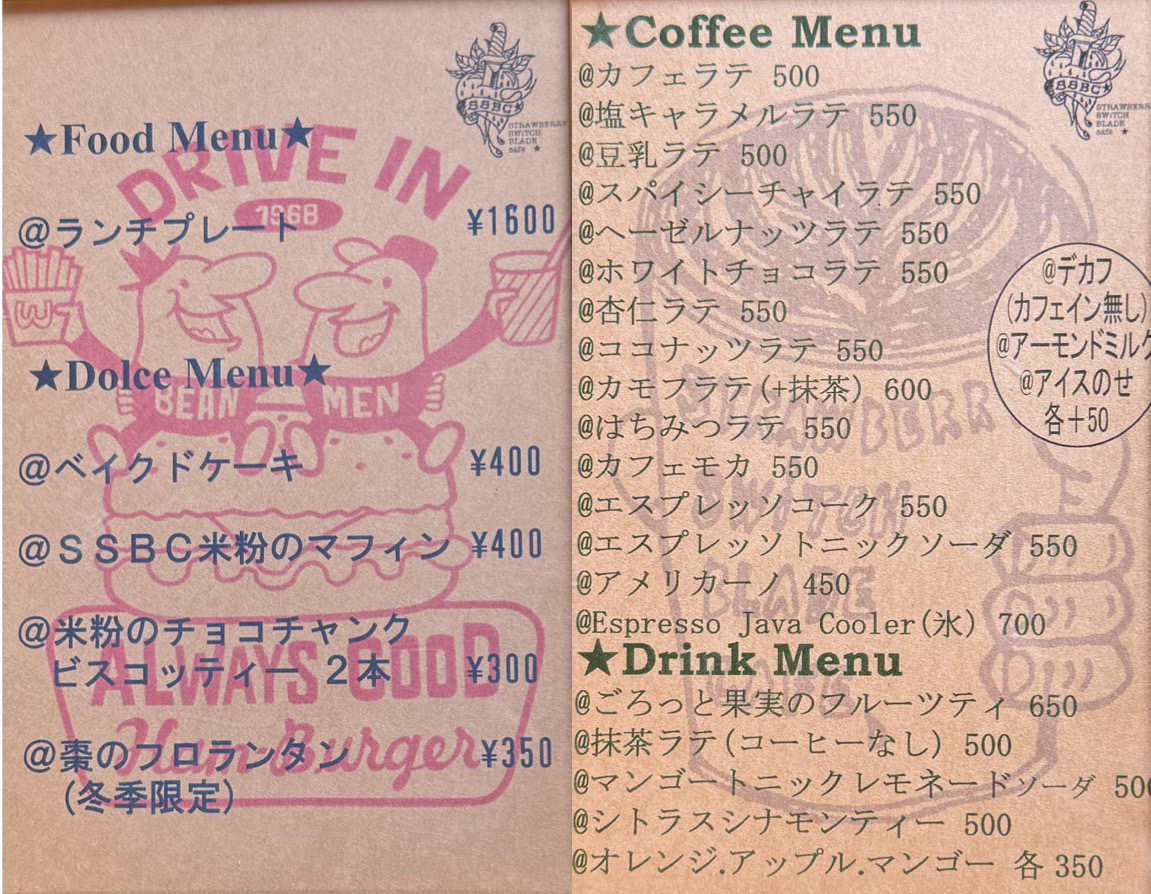 SSBC
STRAWBERRY
SWITCH
BLADE
cafe ★
★Food Menu★
DRIVE IN
1968
@ランチプレート ¥1600
★Dolce Menu★
BEAN MEN
@ベイクドケーキ ¥400
@ＳＳＢＣ米粉のマフィン ¥400
@米粉のチョコチャンク
ビスコッティー ２本 ¥300
ALWAYS GOOD
Ham Burger
@棗のフロランタン ¥350
(冬季限定)
★Coffee Menu
SSBC
STRAWBERR
SWITCH
BLADE
cafe ★
@カフェラテ 500
@塩キャラメルラテ 550
@豆乳ラテ 500
@スパイシーチャイラテ 550
@ヘーゼルナッツラテ 550
@ホワイトチョコラテ 550
@杏仁ラテ 550
@ココナッツラテ 550
@カモフラテ(+抹茶) 600
@はちみつラテ 550
@カフェモカ 550
@エスプレッソコーク 550
@エスプレッソトニックソーダ 550
@アメリカーノ 450
@Espresso Java Cooler(氷) 700
@デカフ
(カフェイン無し)
@アーモンドミルク
@アイスのせ
各＋50
STRAWBERR
SWITCH
BLADE
★Drink Menu
@ごろっと果実のフルーツティ 650
@抹茶ラテ(コーヒーなし) 500
@マンゴートニックレモネードソーダ 500
@シトラスシナモンティー 500
@オレンジ.アップル.マンゴー 各350